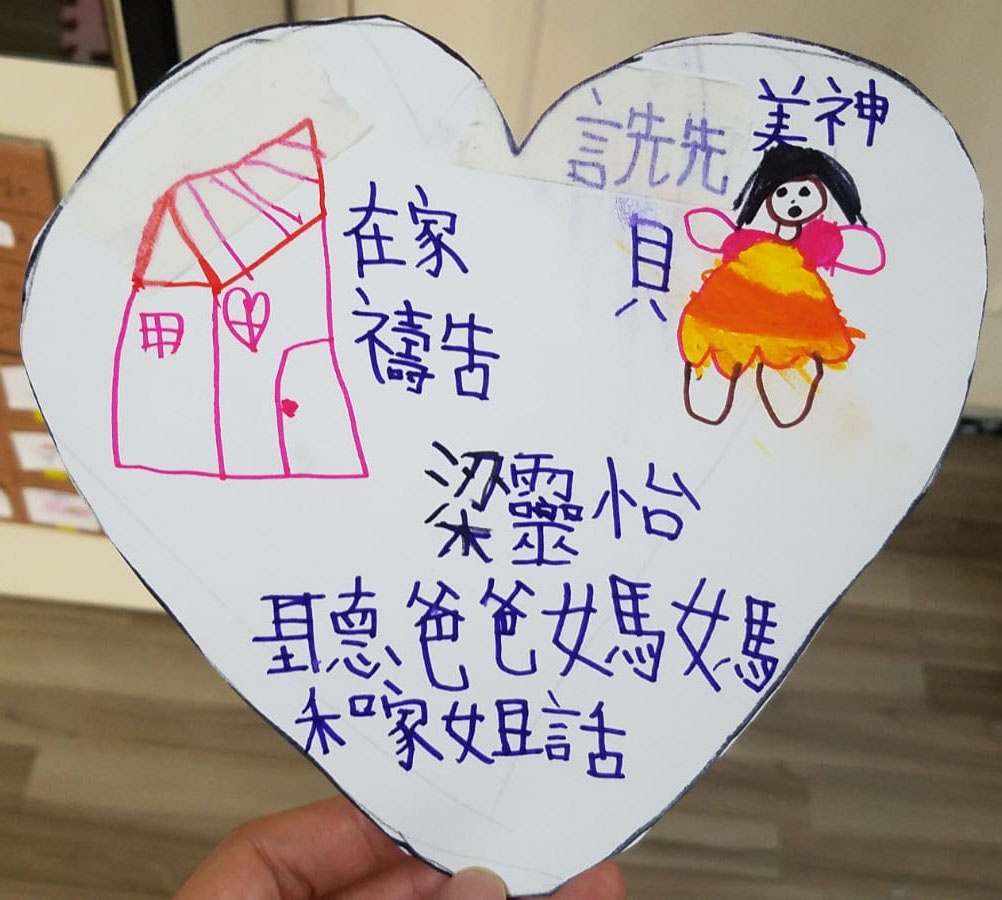 在家
禱告
讚美神
梁靈怡
聽爸爸媽媽
和家姐話